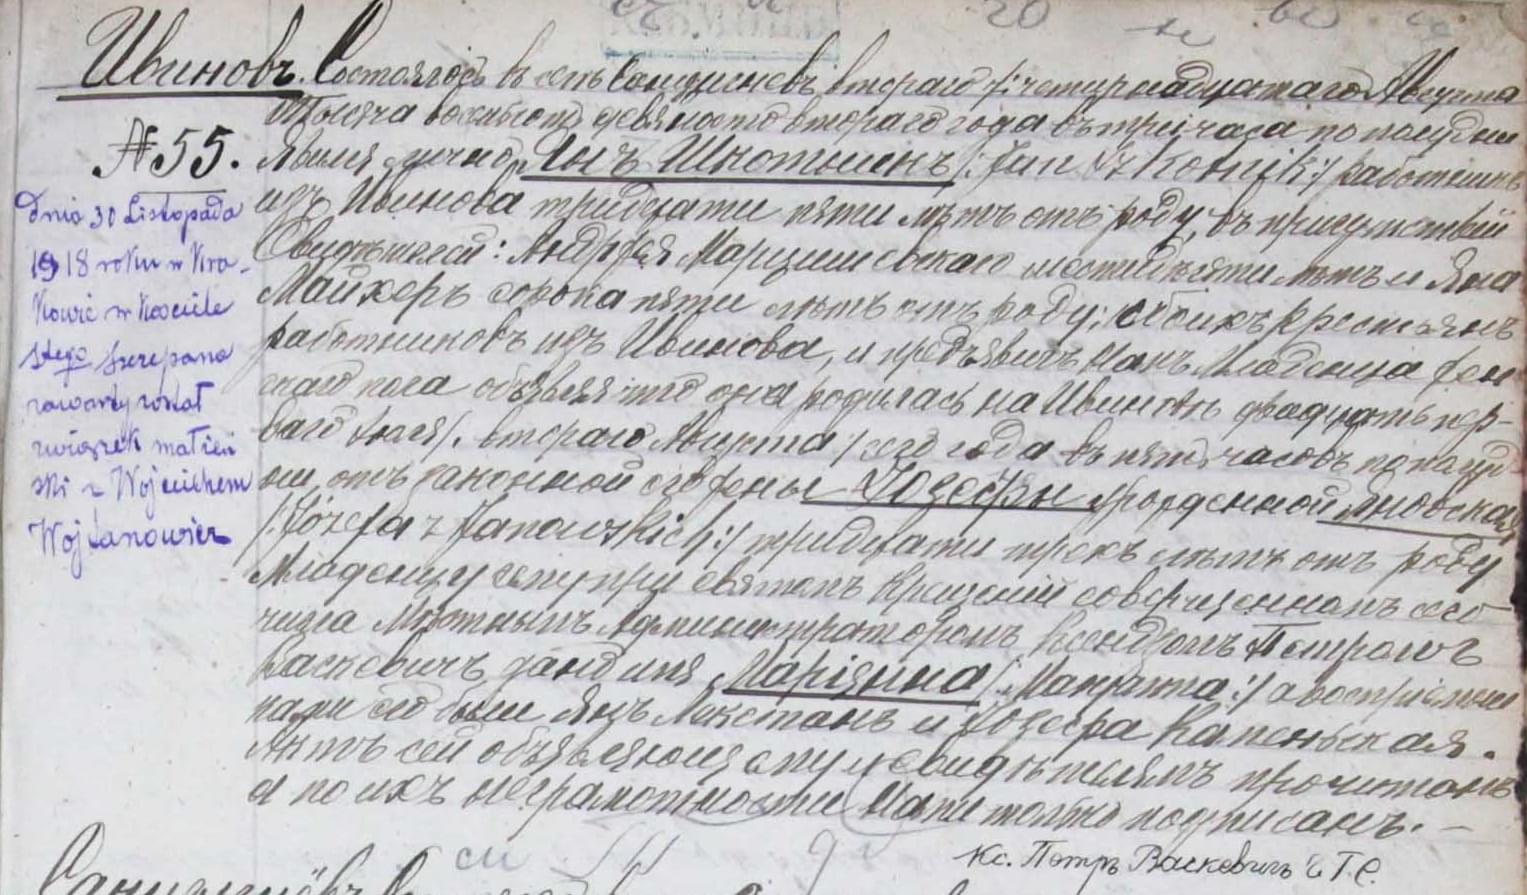 Ивиновъ. Состоялось въ селѣ второго /:четырнадцатаго Августа
Тысяча восемьсотъ девяносто второго года въ три часа по полудни
№ 55.
Явился лично Янъ Шкотникъ /:Jan Szkotnik:/ работникъ
изъ Ивинова тридцати пяти лѣтъ отъ роду, въ присутствіи
Свидѣтелей: Андрея шестидесяти лѣтъ и Яна
Майхеръ сорока пяти лѣтъ отъ роду; обоихъ крестьянъ
работниковъ изъ Ивинова, и предъявилъ Намъ Младенца жен
скаго пола объявляя что она родилась на Ивиновѣ двадцать пер-
ваго Іюля /: второго Августа :/ сего года въ пять часовъ по полуд
ни, отъ законной его жены Юзефы урожденной Яновская
/:Józefa z Janowskich:/ тридцати трехъ лѣтъ отъ роду
Младенцу сему при святомъ Крещеніи совершенномъ сего
числа Мѣстнымъ Администраторомъ Ксендзомъ Петромъ
Васкевичъ дано имя Маріянна /: Maryanna :/ а воспріемни
ками его были Янъ и Юзефа Каменьская.
Актъ сей объявляющему и Свидѣтелямъ прочитанъ
а по ихъ неграмотности Нами только подписанъ. —
Кс. Петръ Васкевичъ Ч. Г. С.
dnia 30 Listopada
1918 roku w Kra-
kowie w Kościele
Stego Szczepana
zawarty został
związek małżeń
ski z Wojciechem
Wojtanowicz